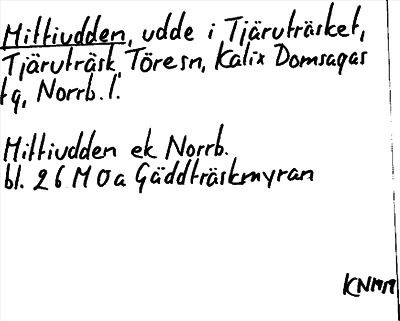 Mittiudden, udde i Tjäruträsket,
Tjäruträsk, Töresn, Kalix Domsagas
tg, Norrb. l.
Mittiudden ek Norrb.
bl. 26 M 0a Gäddträskmyran
KNMM